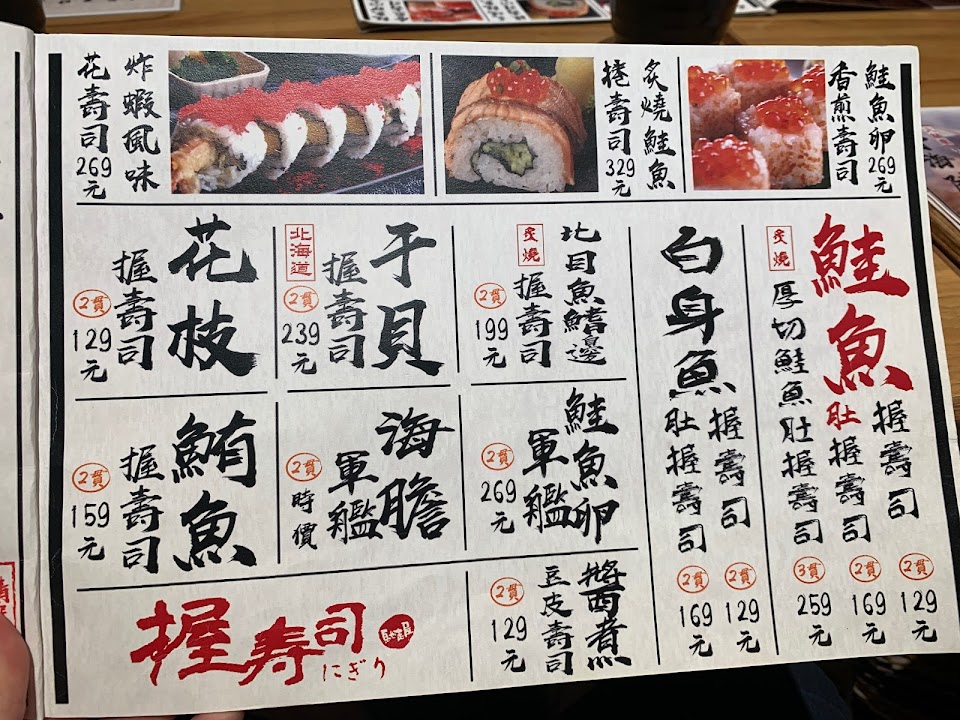 鮭魚卵
香煎壽司
269元
炙燒鮭魚
捲壽司
329元
炸蝦風味
花壽司
269元
鮭魚
握壽司
2貫
129元
肚握壽司
2貫
169元
炙燒
厚切鮭魚肚握壽司
3貫
259元
白身魚
握壽司
2貫
129元
肚握壽司
2貫
169元
北目魚鰭邊
炙燒
握壽司
2貫
199元
鮭魚卵
軍艦
2貫
269元
醬煮
豆皮壽司
2貫
129元
干貝
北海道
握壽司
2貫
239元
海膽
軍艦
2貫
時價
花枝
握壽司
2貫
129元
鮪魚
握壽司
2貫
159元
握寿司
にぎり